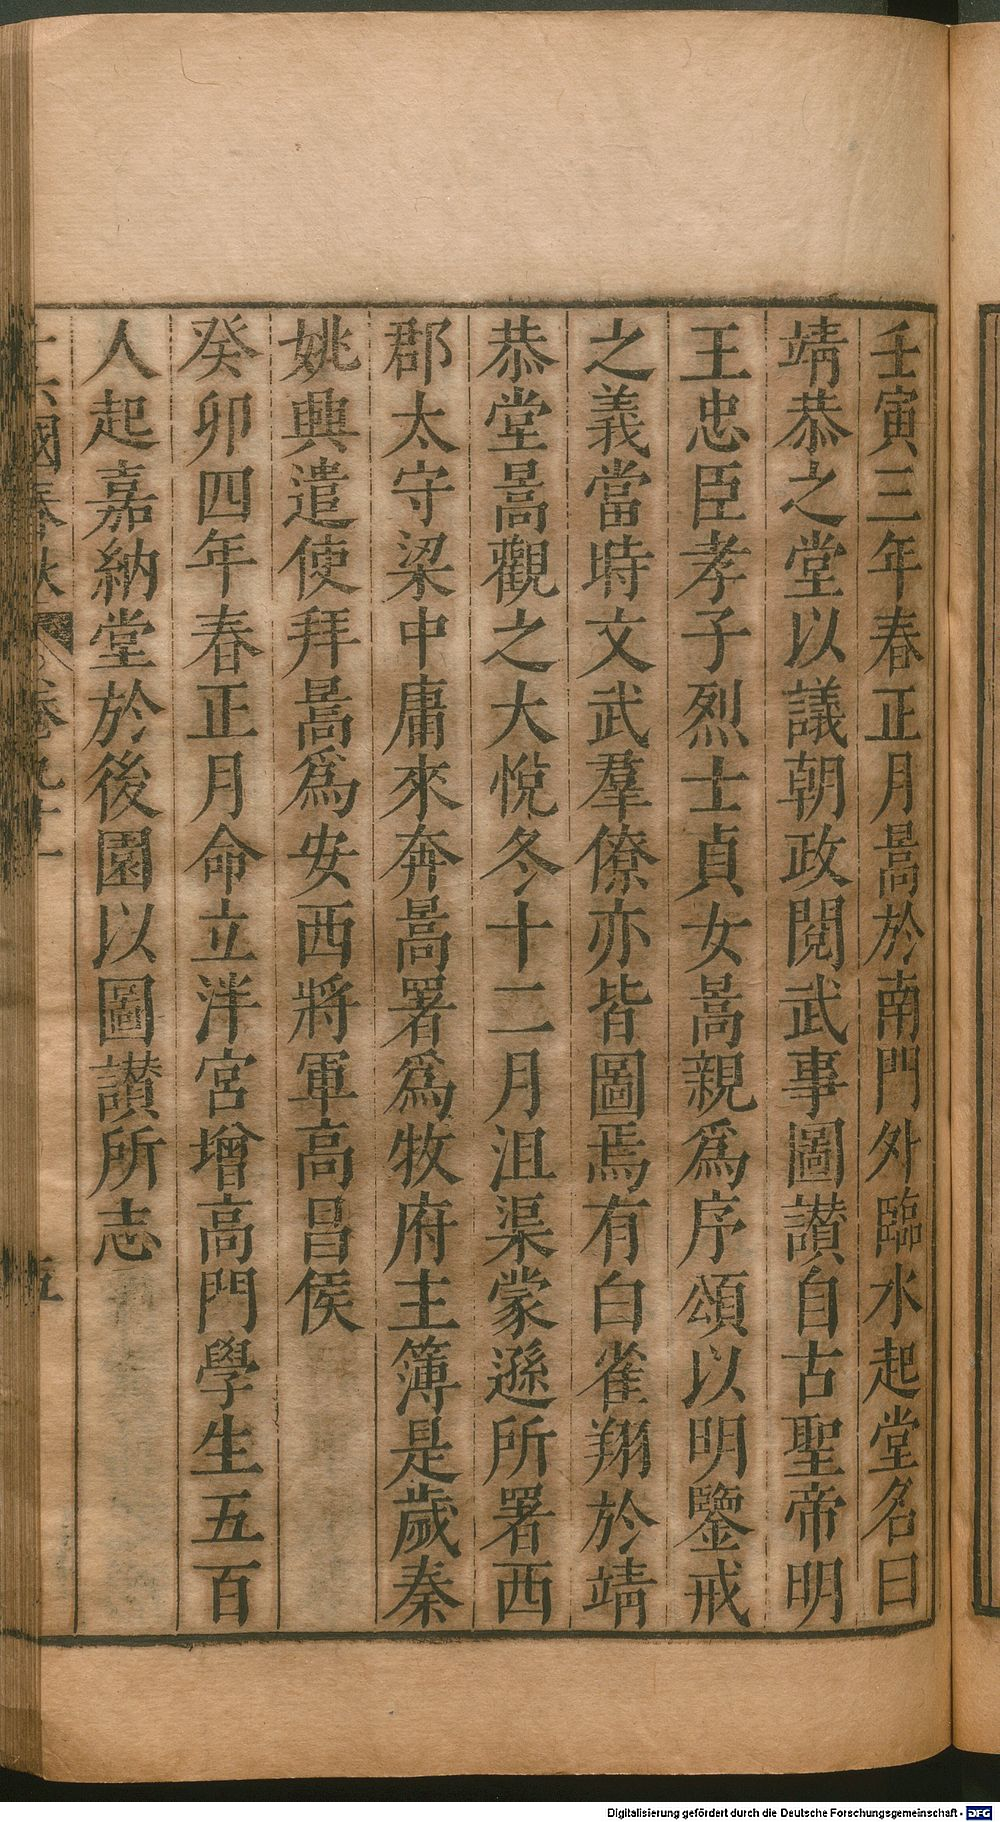 壬寅三年春正月暠於南門外臨水起堂名曰
靖恭之堂以議朝政閱武事圖讃自古聖帝明
王忠臣孝子烈士貞女暠親爲序頌以明鑒戒
之義當時文武羣僚亦皆圖焉有白雀翔於靖
恭堂暠觀之大悅冬十二月沮渠蒙遜所署西
郡太守梁中庸來奔暠署爲牧府主簿是歲秦
姚興遣使拜暠爲安西將軍高昌侯
癸卯四年春正月命立泮宮增高門學生五百
人起嘉納堂於後園以圖讃所志
國春秋 卷九十一 五
Digitalisierung gefördert durch die Deutsche Forschungsgemeinschaft - DFG